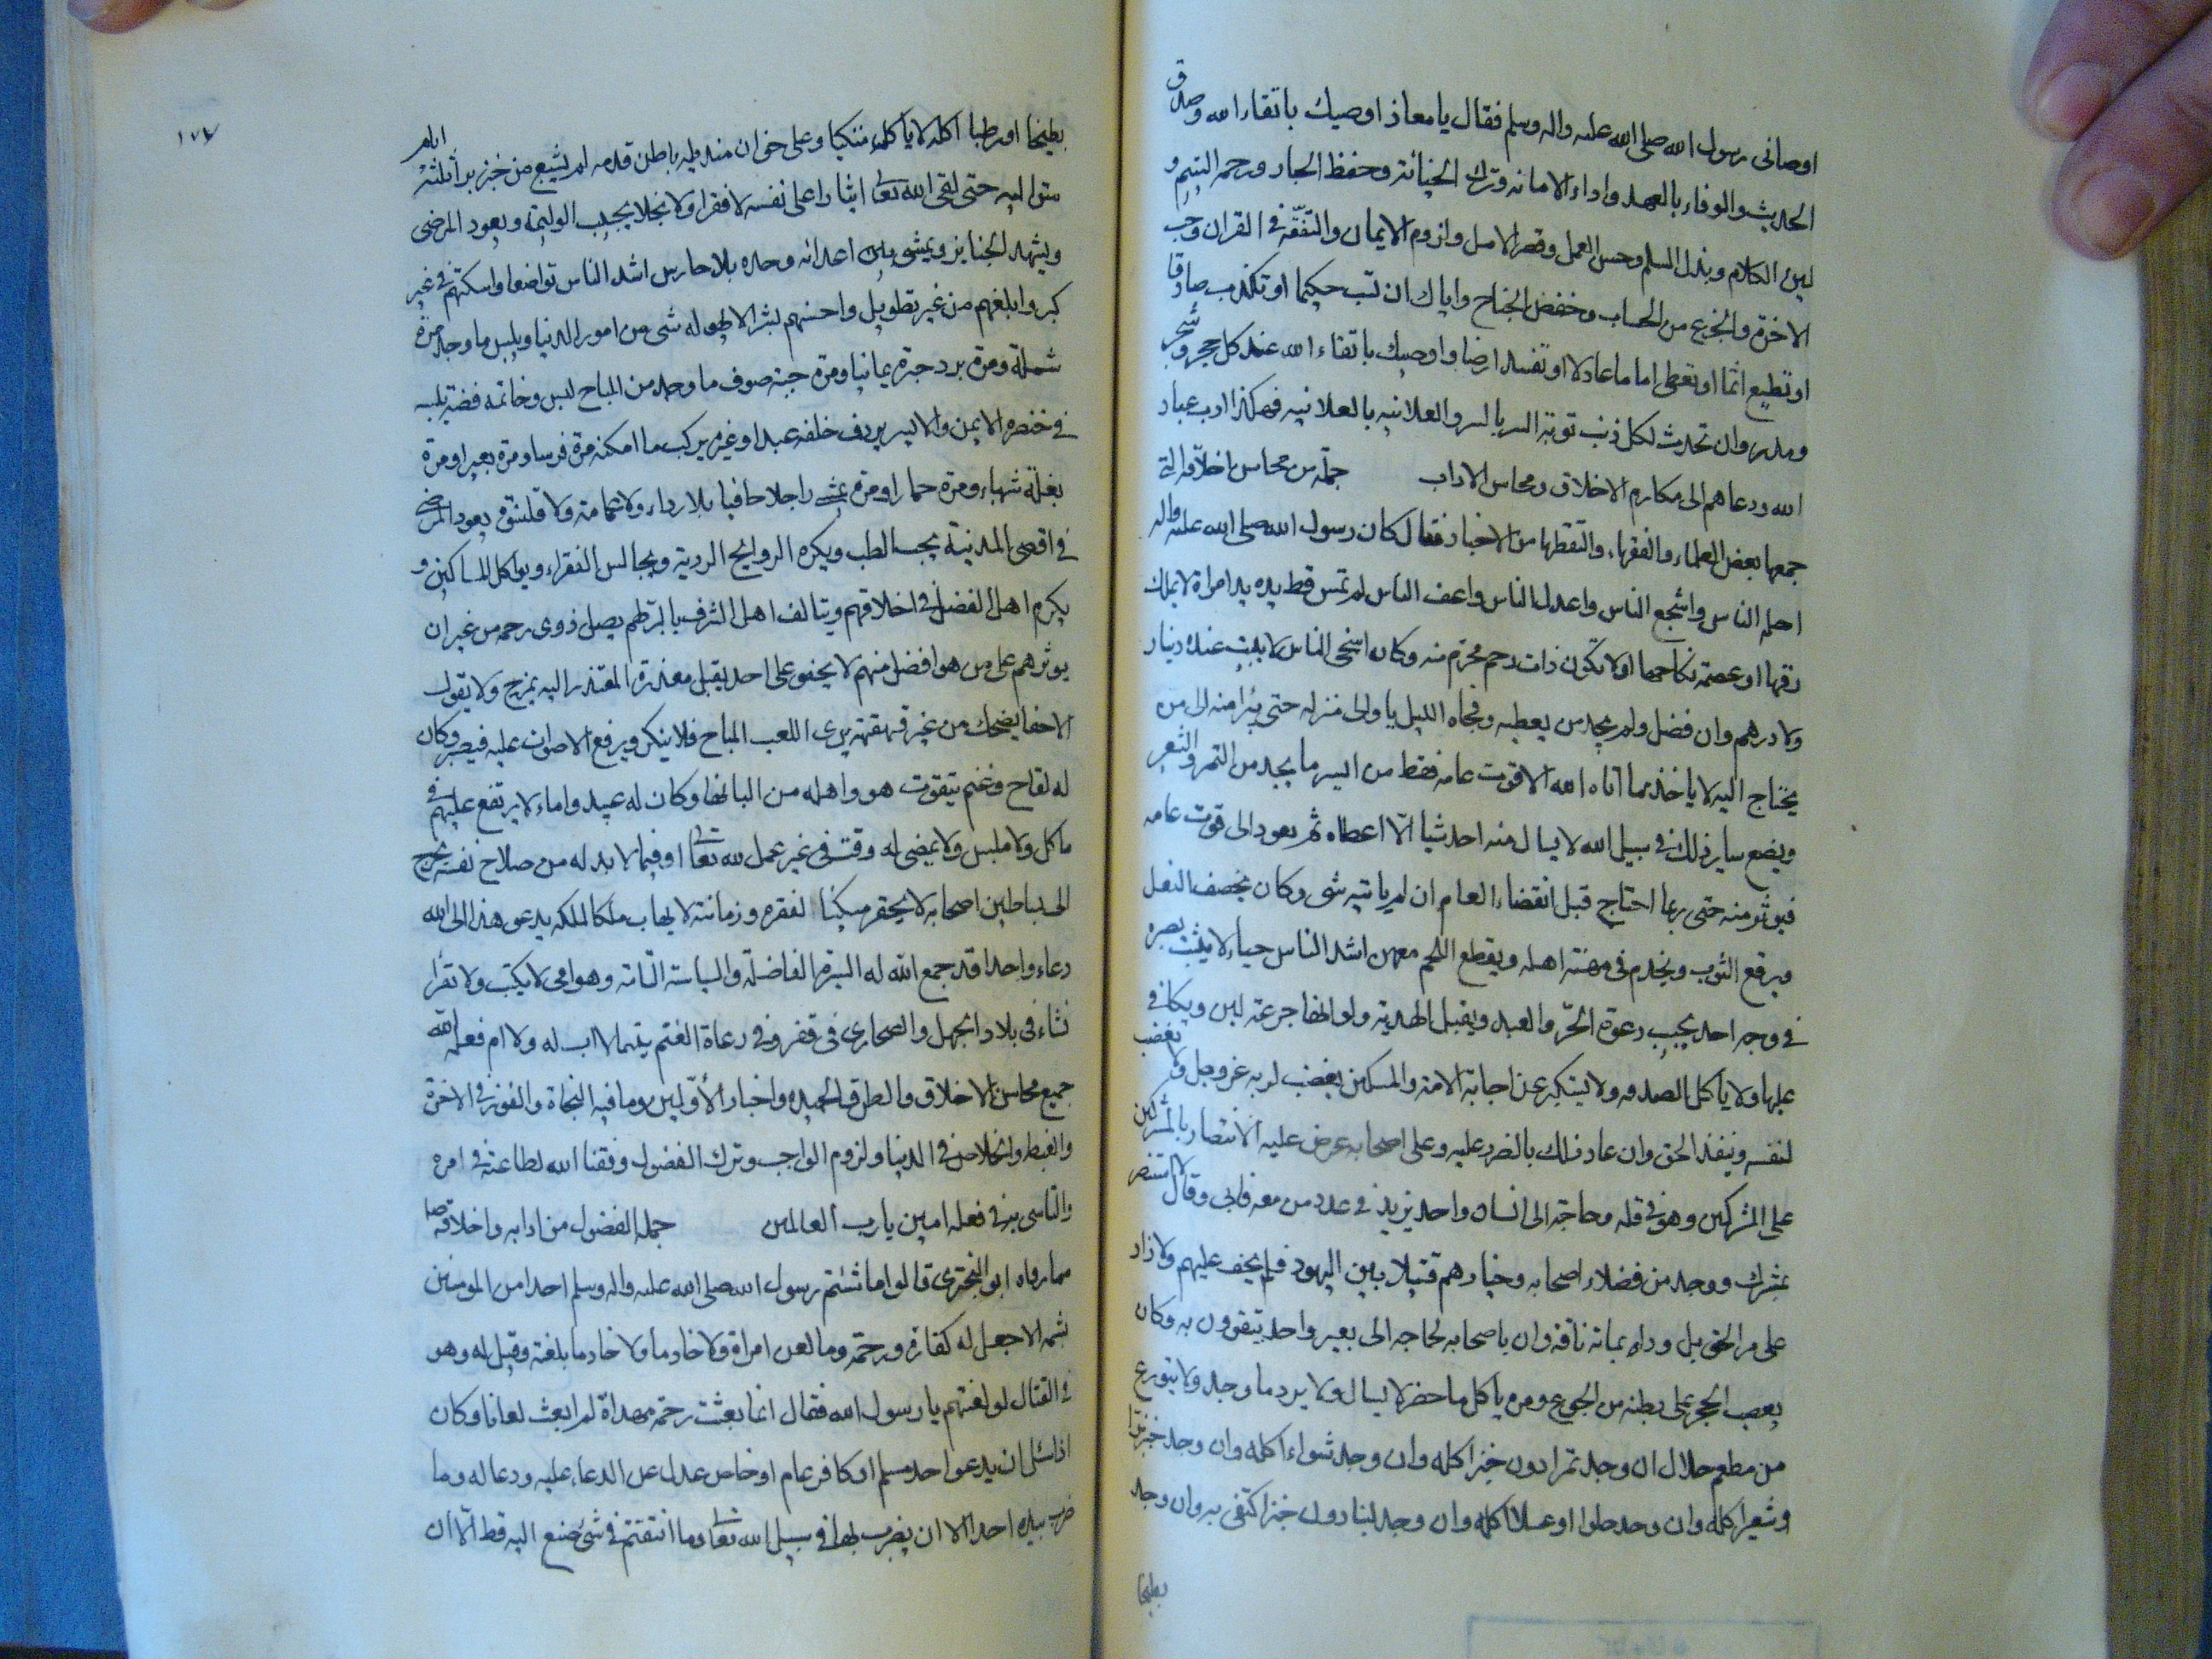 اوصانى رسول الله صلى الله عليه واله وسلم فقال يا معاذ اوصيك باتقاء الله وصدق
الحديث والوفاء بالعهد واداء الامانه وترك الخيانة وحفظ الجار ورحمه اليتيم و
لين الكلام وبذل السلم وحسن العمل وقصر الامل ولزوم الايمان والتفقه فى القران وحب
الاخرة والجزع من الحساب وخفض الجناح واياك ان تسب حكيما او تكذب صادقا
او تطيع اثما او تعصى اماما عادلا او تفسد ارضا واوصيك باتقاء الله عند كل حجر وشجر
ومدر وان تحدث لكل ذنب توبة السر بالسر والعلانيه بالعلانيه فهكذا ادب عباد
الله ودعاهم الى مكارم الاخلاق ومحاسن الاداب جملة من محاسن اخلاقه التى
جمعها بعض العلماء والفقهاء والتقطها من الاخبار فقال كان رسول الله صلى الله عليه واله
احلم الناس واشجع الناس واعدل الناس واعف الناس لم تمس قط يده يد امراة لا يملك
رقها او عصمة نكاحها او لا تكون ذات رحم محرم منه وكان اسخى الناس لا يبيت عنده دينار
ولا درهم وان فضل ولم يجد من يعطيه وفجاه الليل ياولى منزله حتى يبرا منه الى من
يحتاج اليه لا ياخذ مما اتاه الله الا قوت عامه فقط من ايسر ما يجد من التمر والشعير
ويضع ساير ذلك فى سبيل الله لا يسال منه احد شيا الا اعطاه ثم يعود الى قوت عامه
فيوثر منه حتى ربما احتاج قبل انقضاء العام ان لم ياتيه شى وكان يخصف النعل
ويرقع الثوب ويخدم فى مهنة اهله ويقطع اللحم معهن اشد الناس حياء لا يثبت بصره
فى وجه احد يجيب دعوة الحر والعبد ويقبل الهدية ولو انها جرعة لبن ويكافى
عليها ولا ياكل الصدقه ولا يستكبر عن اجابة الامة والمسكين يغضب لربه عز وجل ولا يغضب
لنفسه وينفذ الحق وان عاد ذلك بالضرر عليه وعلى اصحابه عرض عليه الانتصار بالمشركين
على المشركين وهو فى قله وحاجة الى انسان واحد يزيد فى عدد من معه فابى وقال لا استنصر
بمشرك ووجد من فضلاء اصحابه وخيارهم قتيلا بين اليهود فلم يحف عليهم ولا زاد
على مر الحق بل وداه بماة ناقة وان باصحابه لحاجه الى بعير واحد يتقوون به وكان
يعصب الحجر على بطنه من الجوع ومره ياكل ما حضر لا يسال ولا يرد ما وجد ولا يتورع
من مطعم حلال ان وجد تمرا دون خبز اكله وان وجد شواء اكله وان وجد خبز برا
وشعير اكله وان وجد حلوا او عسلا اكله وان وجد لبنا دون خبز اكتفى به وان وجد
بطيخا
١٧٧
بطيخا او رطبا اكله لا ياكله متكيا وعلى خوان منديله باطن قدمه لم يشبع من خبز بر ثلثة ايام
متواليه حتى لقى الله تعالى ايثارا على نفسه لا فقرا ولا بخلا يجيب الوليمة ويعود المرضى
ويشهد الجنايز ويمشى بين اعدائه وحده بلا حارس اشد الناس تواضعا واسكتهم فى غير
كبر وابلغهم من غير تطويل واحسنهم بشرا لا يهوله شى من امور الدنيا ويلبس ما وجد مرة
شملة ومرة برد حبرة يمانيا ومرة جبة صوف ما وجد من المباح لبس وخاتمه فضة يلبسه
فى خنصره الايمن والايسر يردف خلفه عبدا او غيره يركب ما امكنه مرة فرسا ومرة بعيرا ومرة
بغلة شهباء ومرة حمارا ومرة يمشى راجلا حافيا بلا رداء ولا عمامة ولا قلنسوة يعود المرضى
فى اقصى المدينة يحب الطب ويكره الروايح الردية ويجالس الفقراء ويواكل المساكين و
يكرم اهل الفضل فى اخلاقهم ويتالف اهل الشرف بالبر لهم يصل ذوى رحمه من غير ان
يوثرهم على من هو افضل منهم لا يجفو على احد يقبل معذرة المعتذر اليه يمزح ولا يقول
الا حقا يضحك من غير قهقهة يرى اللعب المباح فلا ينكر ويرفع الاصوات عليه فيصبر وكان
له لقاح وغنم يتقوت هو واهله من البانها وكان له عبيد واماء لا يرتفع عليهم فى
ماكل ولا ملبس ولا يمضى له وقت فى غير عمل لله تعالى او فيما لا بد له من صلاح نفسه يخرج
الى بساطين اصحابه لا يحقر مسكينا لفقره وزمانته لا يهاب ملكا لملكه يدعو هذا الى الله
دعاء واحدا قد جمع الله له السيرة الفاضلة والسياسة التامة وهو امى لا يكتب ولا يقرا
نشاء فى بلاد الجهل والصحارى فى فقر وفى رعاة الغنم يتيما لا اب له ولا ام فعلمه الله
جميع محاسن الاخلاق والطرق الحميده واخبار الأولين وما فيه النجاة والفوز فى الاخرة
والغبطه والخلاص فى الدنيا ولزوم الواجب وترك الفضول وفقنا الله لطاعته فى امره
والتاسى به فى فعله امين يا رب العالمين جملة الفضول من ادابه واخلاقه
مما رواه ابو البخترى قالوا ما شتم رسول الله صلى الله عليه واله وسلم احدا من المومنين
بشتمه الا جعل له كفارة ورحمة وما لعن امراة ولا خادما ولا خادما بلعنة وقيل له وهو
فى القتال لو لعنتهم يا رسول الله فقال انما بعثت رحمة مهداة لم ابعث لعانا وكان
اذا سئل ان يدعو احد مسلم او كافر عام او خاص عدل عن الدعاء عليه ودعا له وما
ضرب بيده احدا الا ان يضرب بها فى سبيل الله تعالى وما انتقم فى شى صنع اليه قط الا ان